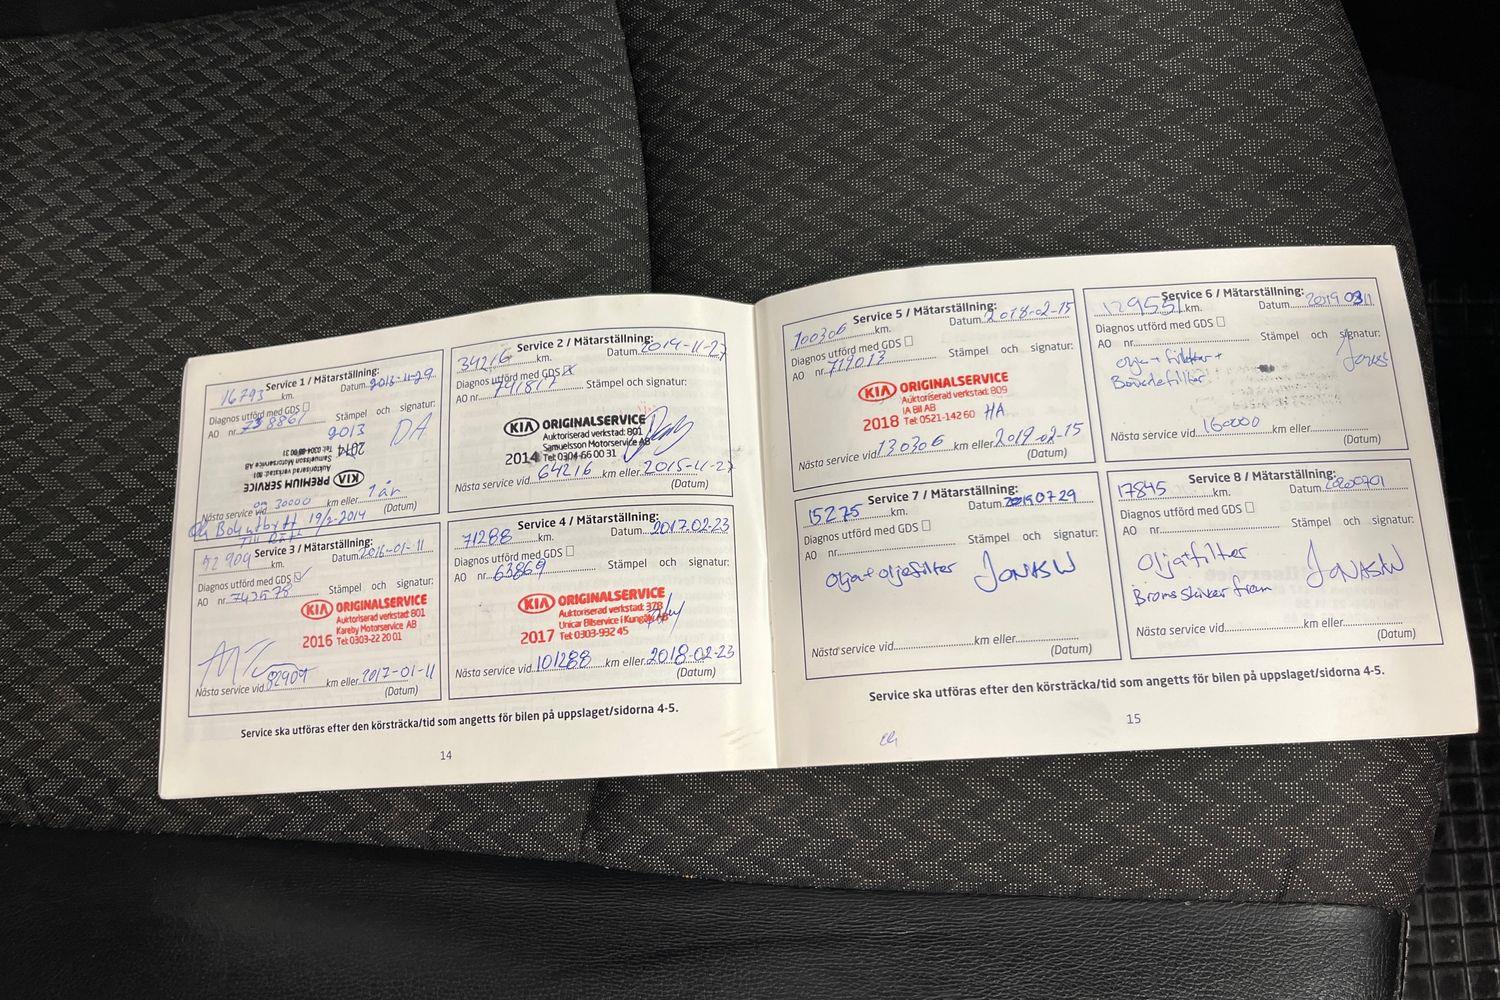 Service 1 / Mätarställning:
16793 km. Datum 2013-11-29
Diagnos utförd med GDS
AO nr. 738861 Stämpel och signatur:
2013 DA
2014
KIA PREMIUM SERVICE
Auktoriserad verkstad: 801
Samuelsson Motorservice AB
Tel: 0304-66 00 31
Nästa service vid 30000 km eller 1 år
(Datum)
19/2-2014
Service 2 / Mätarställning:
34216 km. Datum 2014-11-27
Diagnos utförd med GDS
AO nr. 741817 Stämpel och signatur:
KIA ORIGINALSERVICE
Auktoriserad verkstad: 801
Samuelsson Motorservice AB
2014 Tel: 0304-66 00 31
Nästa service vid 64216 km eller 2015-11-27
(Datum)
Service 3 / Mätarställning:
52909 km. Datum 2016-01-11
Diagnos utförd med GDS
AO nr. Stämpel och signatur:
KIA ORIGINALSERVICE
Auktoriserad verkstad: 801
Kareby Motorservice AB
2016 Tel: 0303-22 20 01
Nästa service vid 82909 km eller 2017-01-11
(Datum)
Service 4 / Mätarställning:
71288 km. Datum 2017.02-23
Diagnos utförd med GDS
AO nr. 63869 Stämpel och signatur:
KIA ORIGINALSERVICE
Auktoriserad verkstad: 378
Unicar Bilservice i Kungälv AB
2017 Tel: 0303-932 45
Nästa service vid 101288 km eller 2018-02-23
(Datum)
Service ska utföras efter den körsträcka/tid som angetts för bilen på uppslaget/sidorna 4-5.
14
Service 5 / Mätarställning:
100306 km. Datum 2018-02-15
Diagnos utförd med GDS
AO nr. 719013 Stämpel och signatur:
KIA ORIGINALSERVICE
Auktoriserad verkstad: 809
IA Bil AB
2018 Tel: 0521-142 60 HA
Nästa service vid 130306 km eller 2019-02-15
(Datum)
Service 6 / Mätarställning:
129551 km. Datum 2019 0311
Diagnos utförd med GDS
AO nr. Stämpel och signatur:
olja + filter + Jonas
Nästa service vid 160000 km eller
(Datum)
Service 7 / Mätarställning:
15275 km. Datum 20190729
Diagnos utförd med GDS
AO nr. Stämpel och signatur:
olja+oljefilter JONAS W
Nästa service vid km eller
(Datum)
Service 8 / Mätarställning:
17845 km. Datum 20200701
Diagnos utförd med GDS
AO nr. Stämpel och signatur:
Olja+filter JONAS W
Bromsskivor fram
Nästa service vid km eller
(Datum)
Service ska utföras efter den körsträcka/tid som angetts för bilen på uppslaget/sidorna 4-5.
15